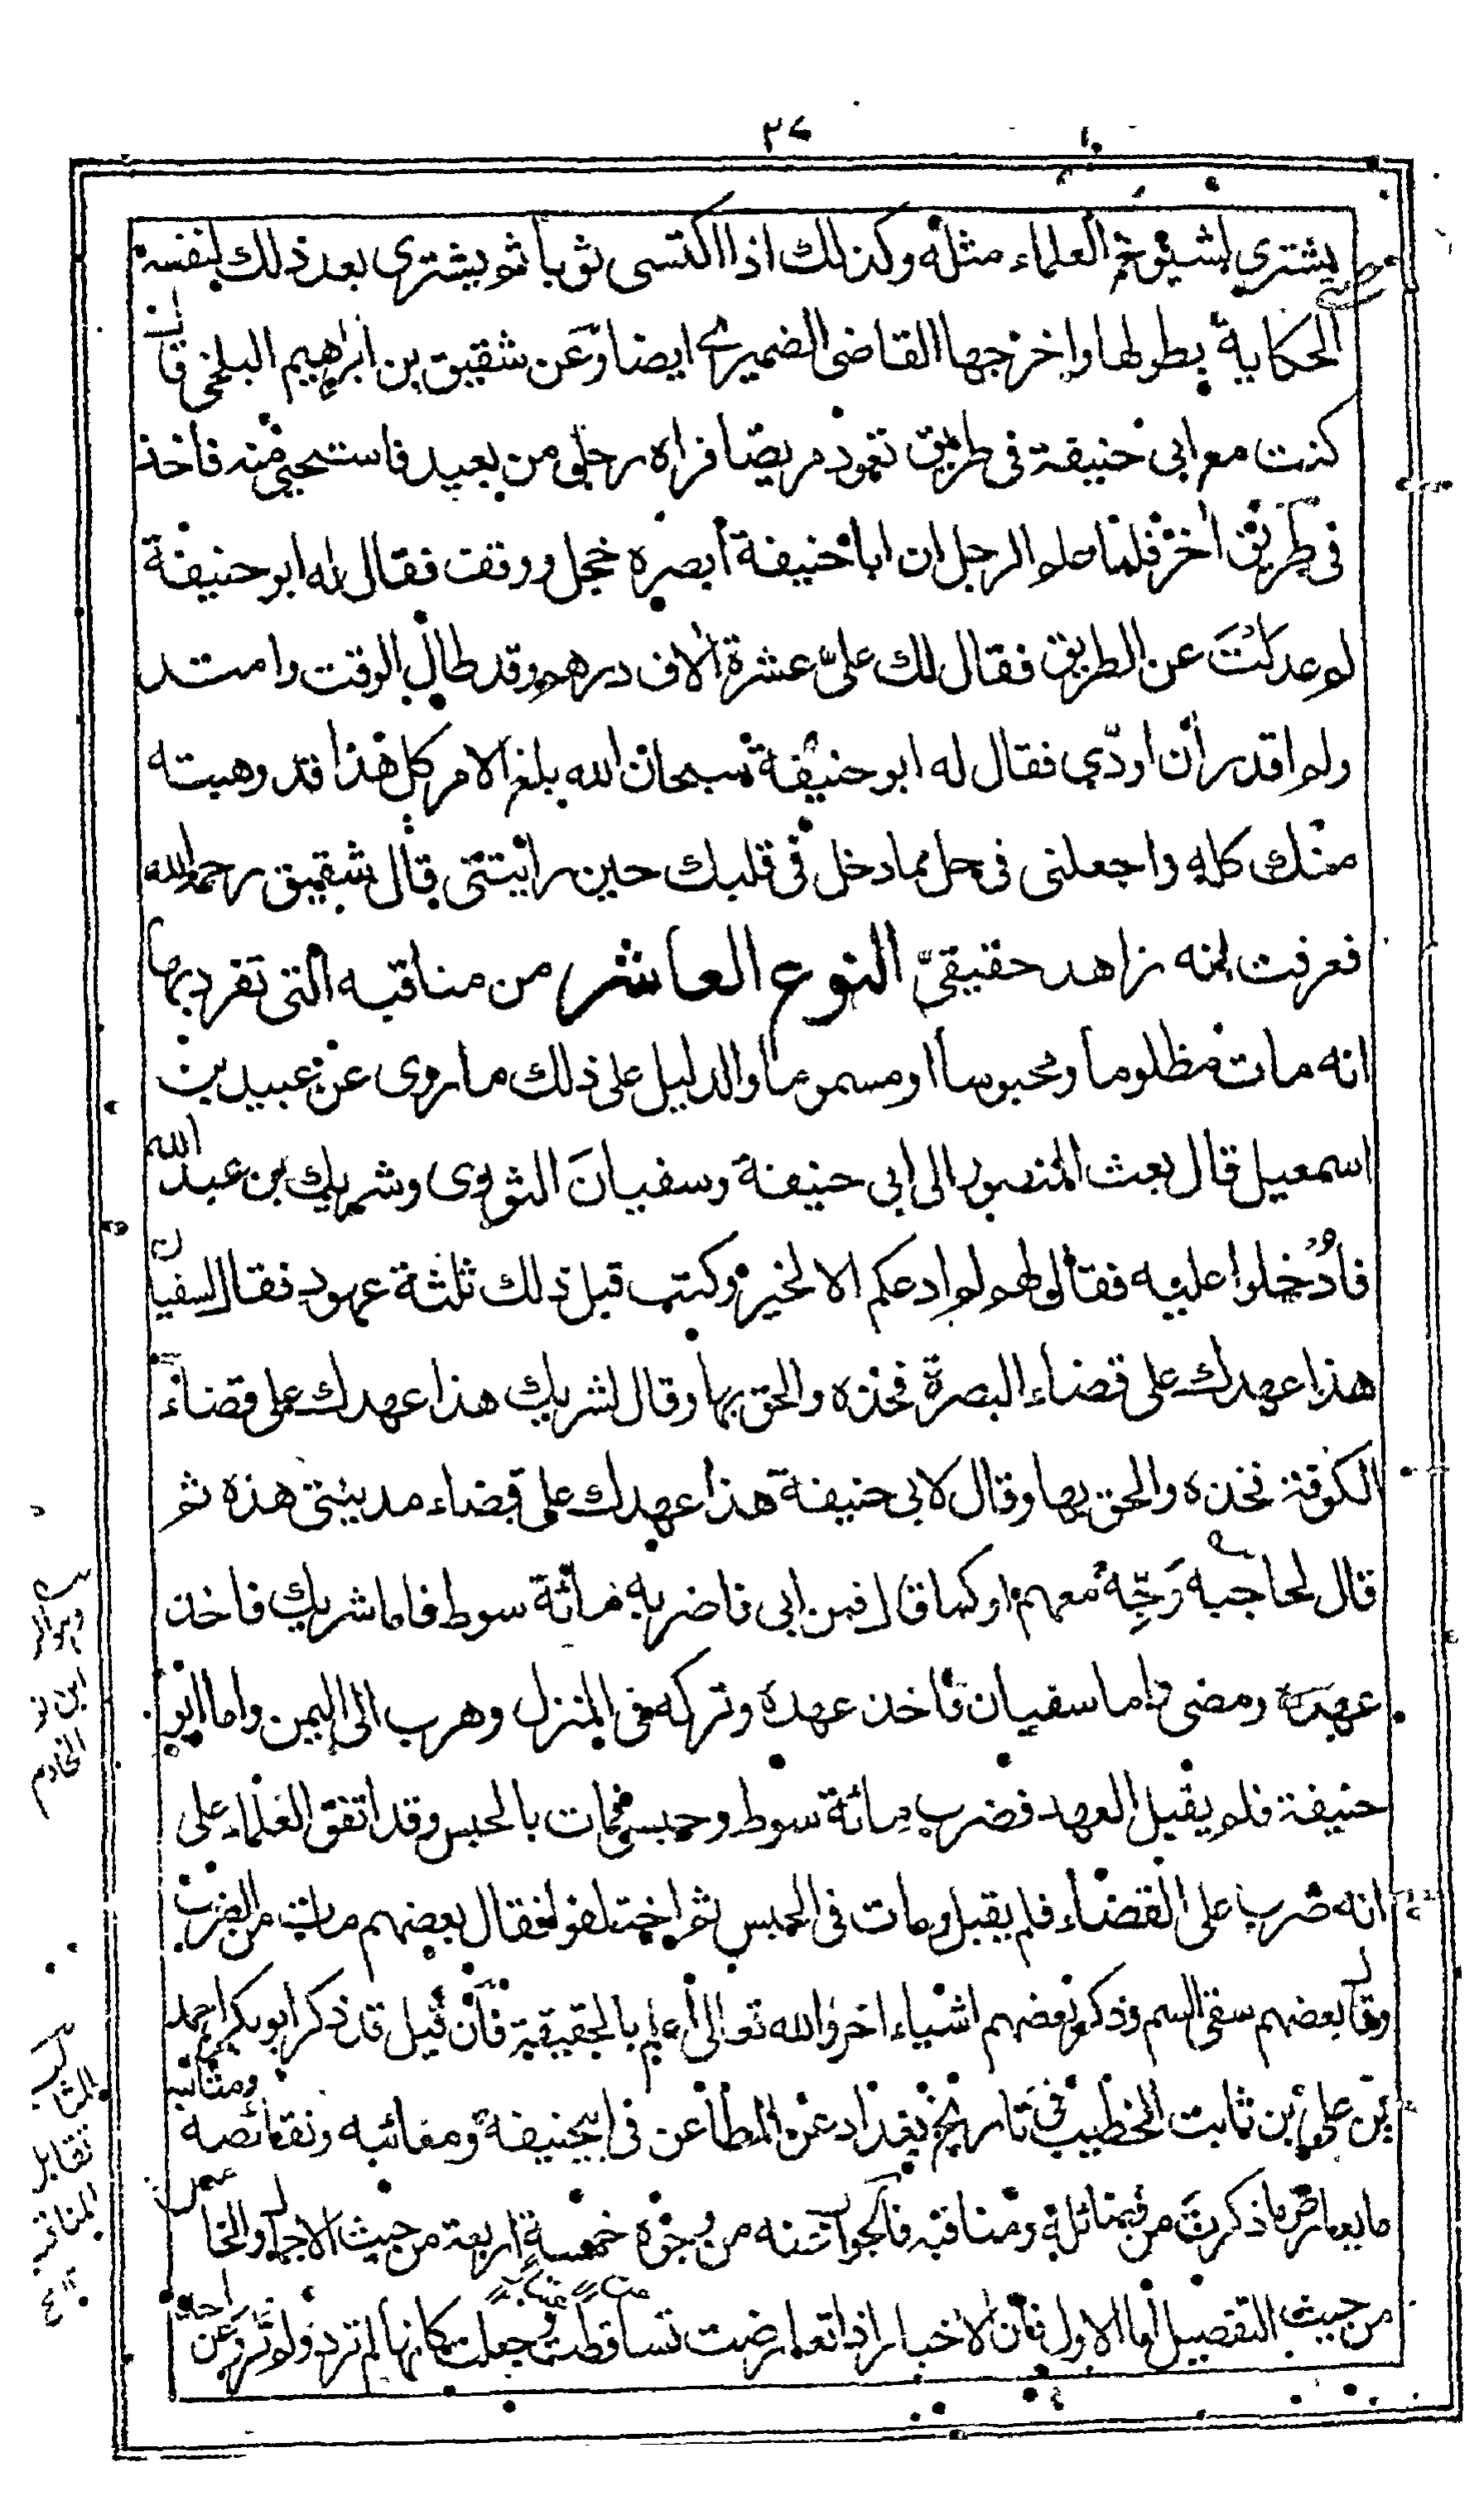 ٣٤
يشترى لشيوخ العلماء مثله وكذلك اذا اكتسى ثوبا ثم يشترى بعد ذلك لنفسه
الحكاية بطولها واخرجها القاضى الضميرى ايضا وعن شقيق بن ابراهيم البلخى قال
كنت مع ابى حنيفة فى طريق نعود مريضا فراه رجل من بعيد فاستحيى منه فاخذ
فى طريق اخر فلما علم الرجل ان ابا حنيفة ابصره خجل ووقف فقال له ابو حنيفة
لم عدلت عن الطريق فقال لك علىّ عشرة الاف درهم وقد طال الوقت وامتد
ولم اقدر أن اودّي فقال له ابو حنيفة سبحان الله بلغ الامر كل هذا قد وهبته
منك كله واجعلنى فى حل مما دخل فى قلبك حين رايتنى قال شقيق رحمه الله
فعرفت انه زاهد حقيقىّ النوع العاشر من مناقبه التى تفرد بها
انه مات مظلوما ومحبوسا ومسموما والدليل على ذلك ما روى عن عبيد بن
اسمعيل قال بعث المنصور الى ابى حنيفة وسفيانَ الثورى وشريك بن عبد الله
فاُدْخلوا عليه فقال لهم لم ادعكم الا لخير وكتب قبل ذلك ثلثة عهود فقال لسفيان
هذا عهدك على قضاء البصرة فخذه والحق بها وقال لشريك هذا عهدك على قضاء
الكوفة فخذه والحق بها وقال لابى حنيفة هذا عهدك على قضاء مدينتى هذه ثم
قال لحاجبه وَجِّهْ معهم او كما قال فمن ابى فاضربه مائة سوط فاما شريك فاخذ
عهده ومضى واما سفيان فاخذ عهده وتركه فى المنزل وهرب الى اليمن واما ابو
حنيفة فلم يقبل العهد فضرب مائة سوط وحبس فمات بالحبس وقد اتفق العلماء على
انه ضرب على القضاء فلم يقبل ومات فى الحبس ثم اختلفوا فقال بعضهم مات من الضرب
وقال بعضهم سقى السم وذكر بعضهم اشياء اخر والله تعالى أعلم بالحقيقة فان قيل قد ذكر ابو بكر احمد
بن على بن ثابت الخطيب فى تاريخ بغداد عن المطاعن فى ابيحنيفة ومعائبه ونقائصه ومثالبه
ما يعارض ما ذكرت من فضائله ومناقبه فالجواب عنه من وجوه خمسة اربعة من حيث الاجمال والخامس
من حيث التفصيل اما الاول فان الاخبار اذا تعارضت تساقطت وجعلت كانها لم ترد ولم ترو عن احد